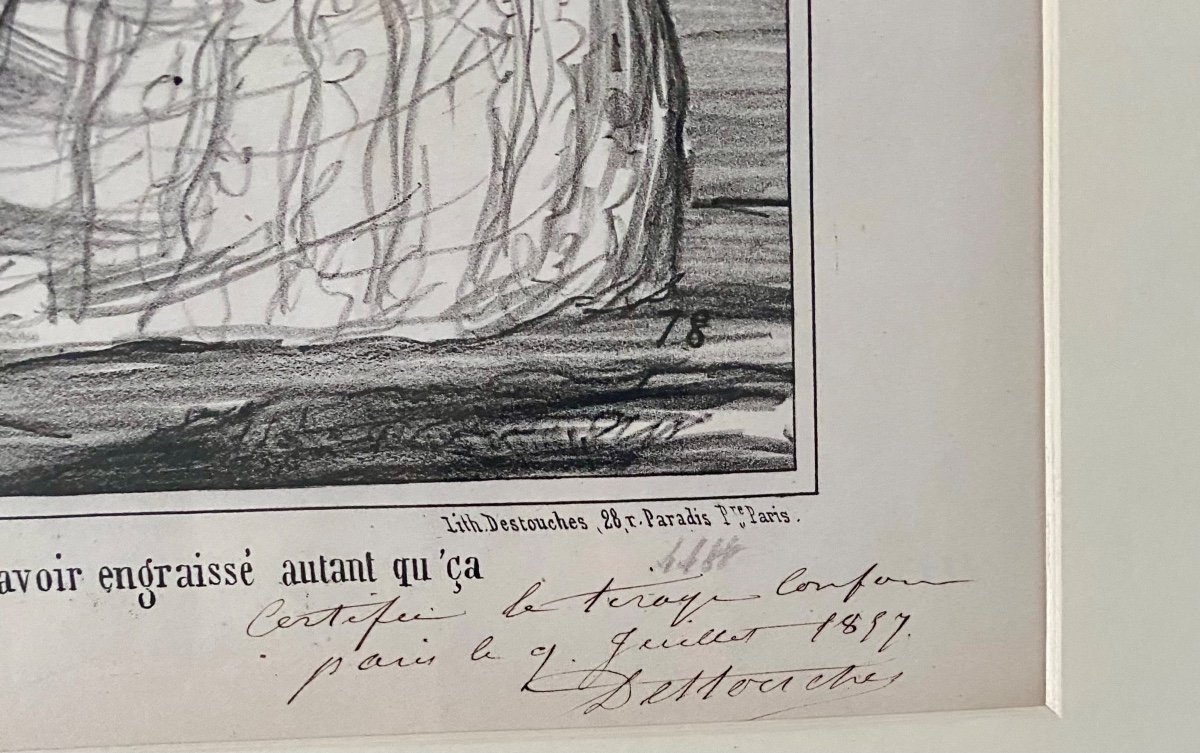 78
Lith. Destouches, 28, r. Paradis Pre Paris.
avoir engraissé autant qu'ça
Certifié le tirage conforme
paris le 9. Juillet 1857.
Destouches